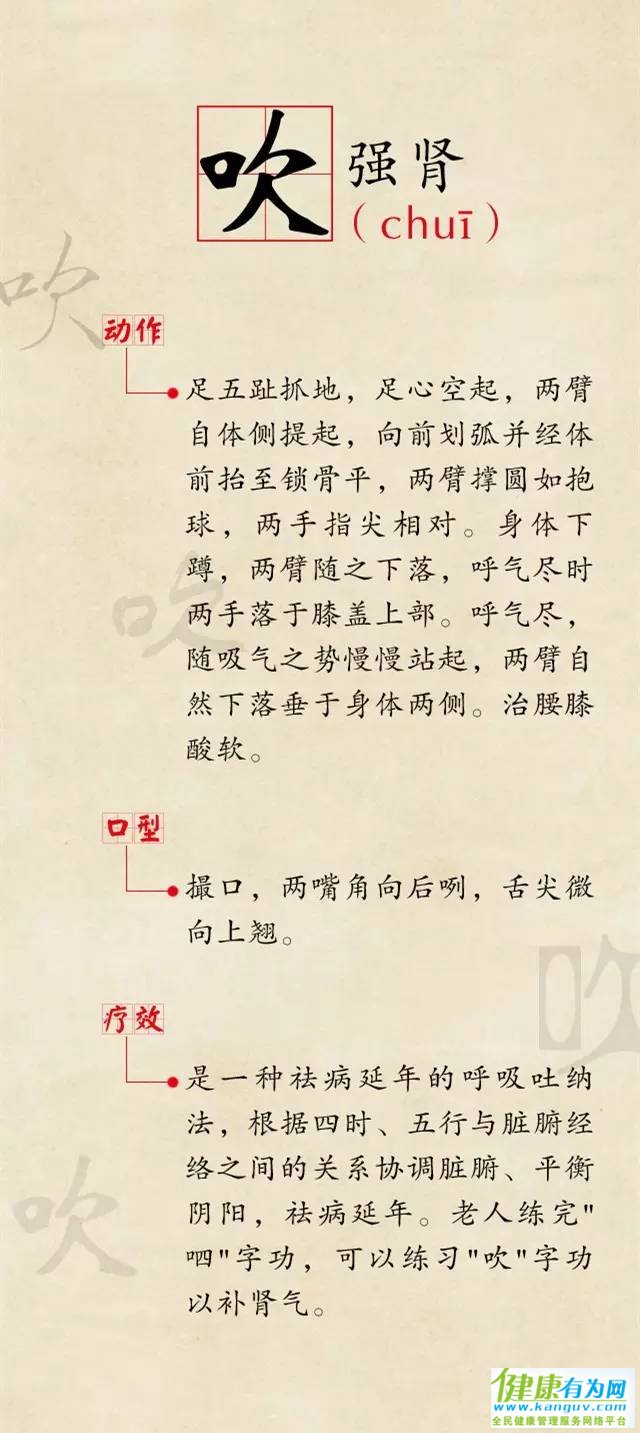 吹
强肾
（chuī）
吹
动作
足五趾抓地，足心空起，两臂
自体侧提起，向前划弧并经体
前抬至锁骨平，两臂撑圆如抱
球，两手指尖相对。身体下
蹲，两臂随之下落，呼气尽时
两手落于膝盖上部。呼气尽，
随吸气之势慢慢站起，两臂自
然下落垂于身体两侧。治腰膝
酸软。
吹
口型
撮口，两嘴角向后咧，舌尖微
向上翘。
吹
疗效
是一种祛病延年的呼吸吐纳
法，根据四时、五行与脏腑经
络之间的关系协调脏腑、平衡
阴阳，祛病延年。老人练完"
呬"字功，可以练习"吹"字功
以补肾气。
吹
健康有为网
www.kanguv.com
全民健康管理服务网络平台